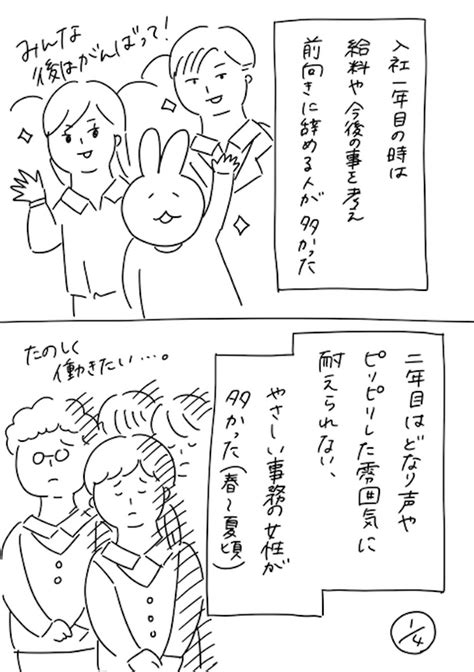 入社一年目の時は
給料や今後の事を考え
前向きに辞める人が多かった
みんな
後はがんばって!
二年目はどなり声や
ピリピリした雰囲気に
耐えられない、
やさしい事務の女性が
多かった(春〜夏頃)
たのしく
働きたい…。
1/4